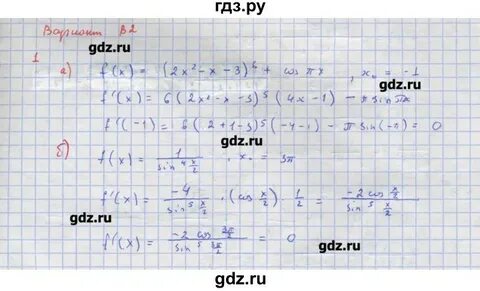 гдз.ру
Вариант В2
gdz.ru gdz.ru
1
а) f(x) = (2x² - x - 3)⁶ + cos πx , x₀ = -1
f'(x) = 6(2x² - x - 3)⁵(4x - 1) - π sin πx
f'(-1) = 6(2+1-3)⁵(-4-1) - π sin(-π) = 0
б) f(x) = 1/sin⁴ x/2 , x₀ = 3π
gdz.ru gdz.ru
f'(x) = -4/sin⁵ x/2 · (cos x/2) · 1/2 = -2 cos x/2 / sin⁵ x/2
f'(x) = -2 cos 3π/2 / sin⁵ 3π/2 = 0
gdz.ru gdz.ru
gdz.ru